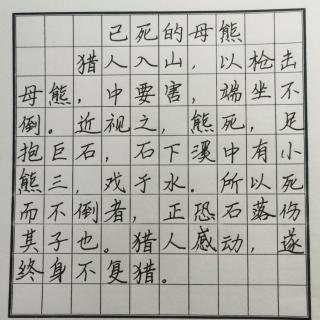 已死的母熊
猎人入山，以枪击
母熊，中要害，端坐不
倒。近视之，熊死，足
抱巨石，石下溪中有小
熊三，戏于水。所以死
而不倒者，正恐石落伤
其子也。猎人感动，遂
终身不复猎。